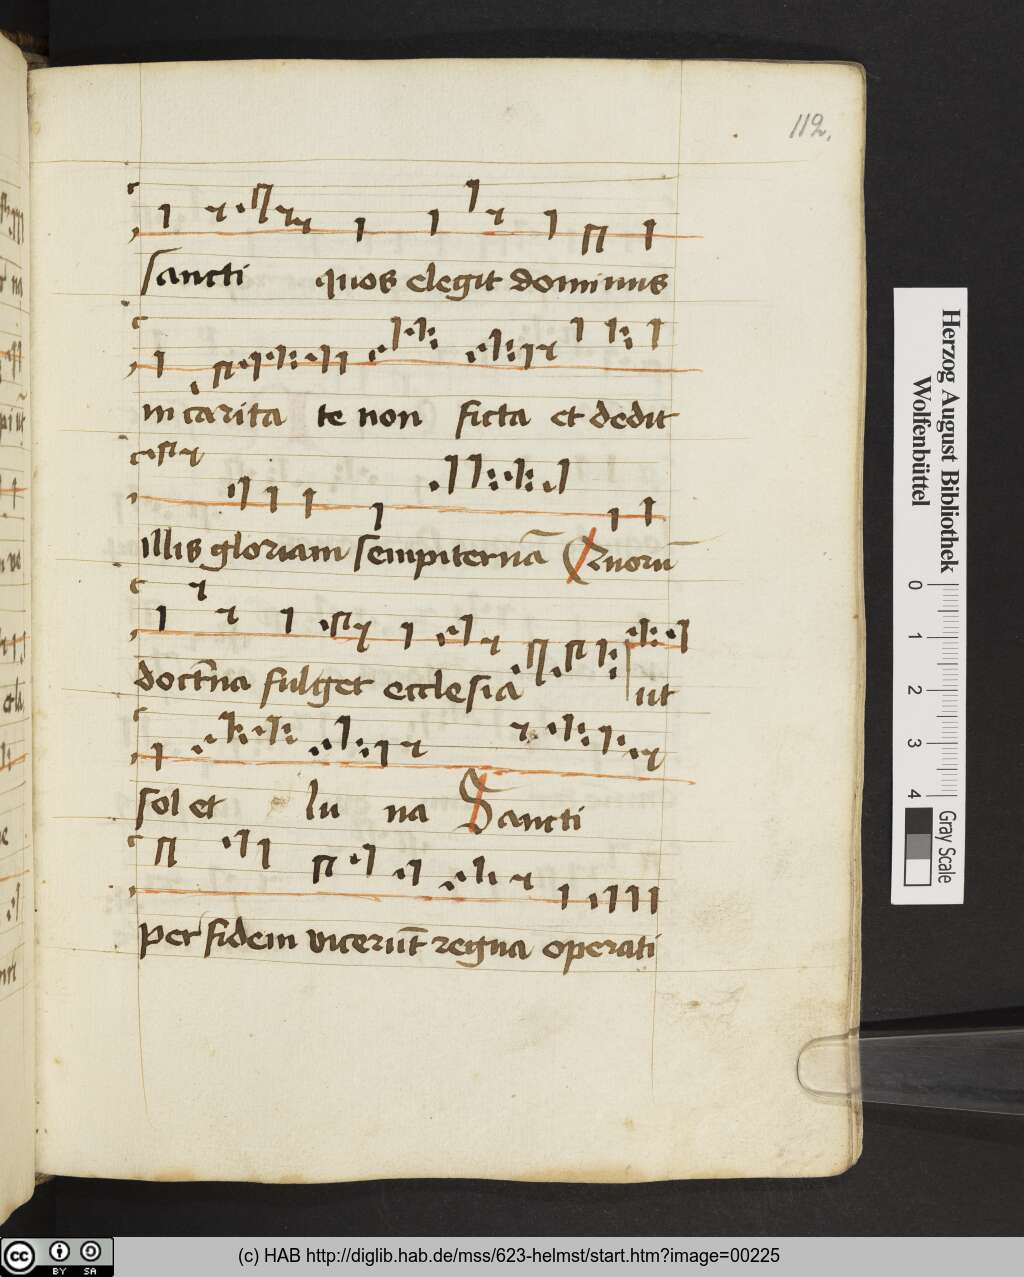 112.
sancti quos elegit dominus
in caritate non ficta et dedit
illis gloriam sempiternā Quorū
doctīna fulget ecclesia ut
sol et luna Sancti
per fidem vicerūt regna operati
Herzog August Bibliothek
Wolfenbüttel
0 1 2 3 4
Gray Scale
cc BY SA
(c) HAB http://diglib.hab.de/mss/623-helmst/start.htm?image=00225